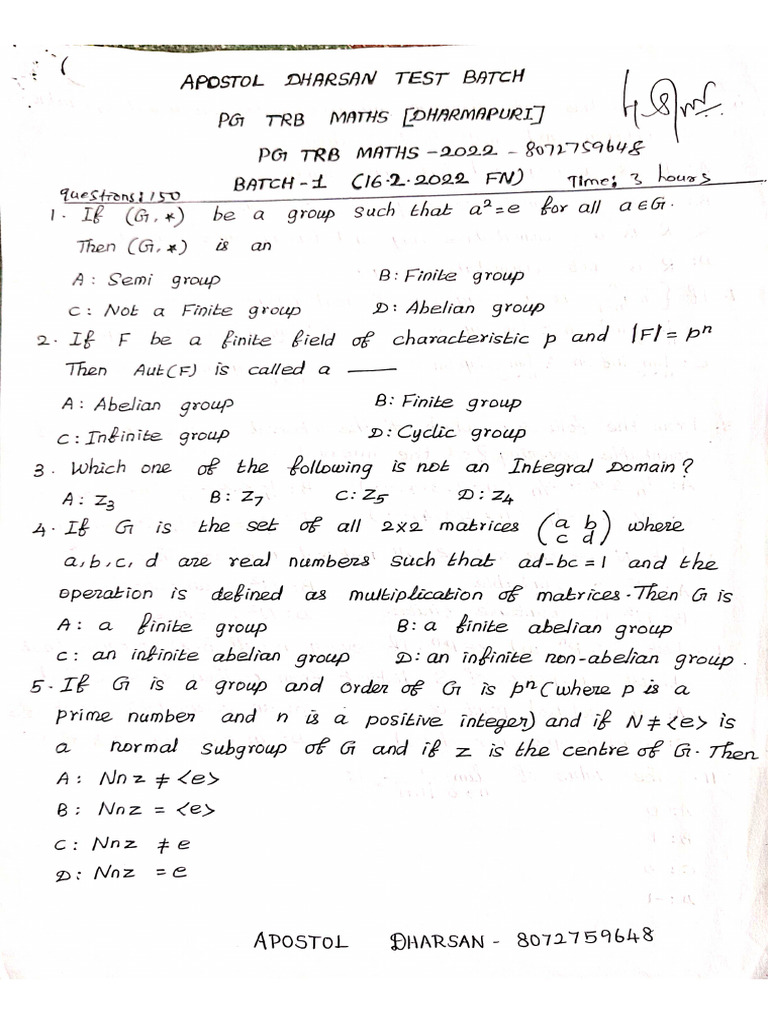 APOSTOL DHARSAN TEST BATCH
PG TRB MATHS [DHARMAPURI]
PG TRB MATHS -2022 - 8072759648
BATCH-1 (16.2.2022 FN) Time: 3 hours
questions: 150
1. If (G, *) be a group such that a²=e for all a∈G.
Then (G, *) is an
A: Semi group B: Finite group
C: Not a Finite group D: Abelian group
2. If F be a finite field of characteristic p and |F| = pⁿ
Then Aut(F) is called a ——
A: Abelian group B: Finite group
C: Infinite group D: Cyclic group
3. Which one of the following is not an Integral Domain?
A: Z₃ B: Z₇ C: Z₅ D: Z₄
4. If G is the set of all 2x2 matrices (a b
c d) where
a, b, c, d are real numbers such that ad-bc = 1 and the
operation is defined as multiplication of matrices. Then G is
A: a finite group B: a finite abelian group
C: an infinite abelian group D: an infinite non-abelian group.
5. If G is a group and order of G is pⁿ (where p is a
prime number and n is a positive integer) and if N ≠ <e> is
a normal subgroup of G and if z is the centre of G. Then
A: N∩z ≠ <e>
B: N∩z = <e>
C: N∩z ≠ e
D: N∩z = e
APOSTOL DHARSAN - 8072759648